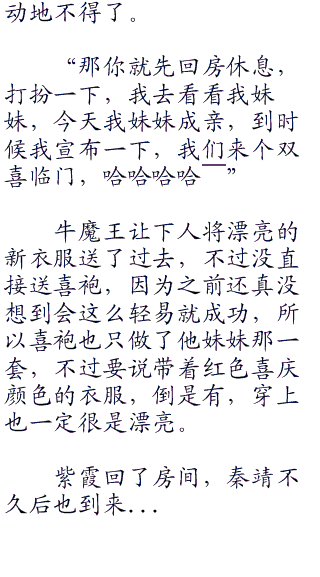 动地不得了。
“那你就先回房休息，
打扮一下，我去看看我妹
妹，今天我妹妹成亲，到时
候我宣布一下，我们来个双
喜临门，哈哈哈哈——”
牛魔王让下人将漂亮的
新衣服送了过去，不过没直
接送喜袍，因为之前还真没
想到会这么轻易就成功，所
以喜袍也只做了他妹妹那一
套，不过要说带着红色喜庆
颜色的衣服，倒是有，穿上
也一定很是漂亮。
紫霞回了房间，秦靖不
久后也到来...